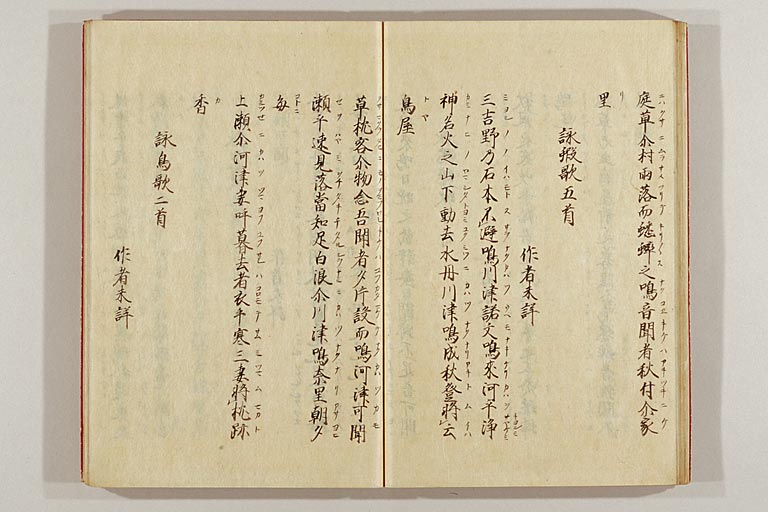 庭草尓村雨落而蟋蟀之鳴音聞者秋付尓家
里
詠蝦歌五首
作者未詳
三吉野乃石本不避鳴川津諾文鳴來河乎淨
神名火之山下動去水丹川津鳴成秋登將云
鳥屋
草枕客尓物念吾聞者夕片設而鳴河津可聞
瀬乎速見落當知足白浪尓川津鳴奈里朝夕
毎
上瀬尓河津妻呼暮去者衣手寒三妻將枕跡
香
詠鳥歌二首
作者未詳